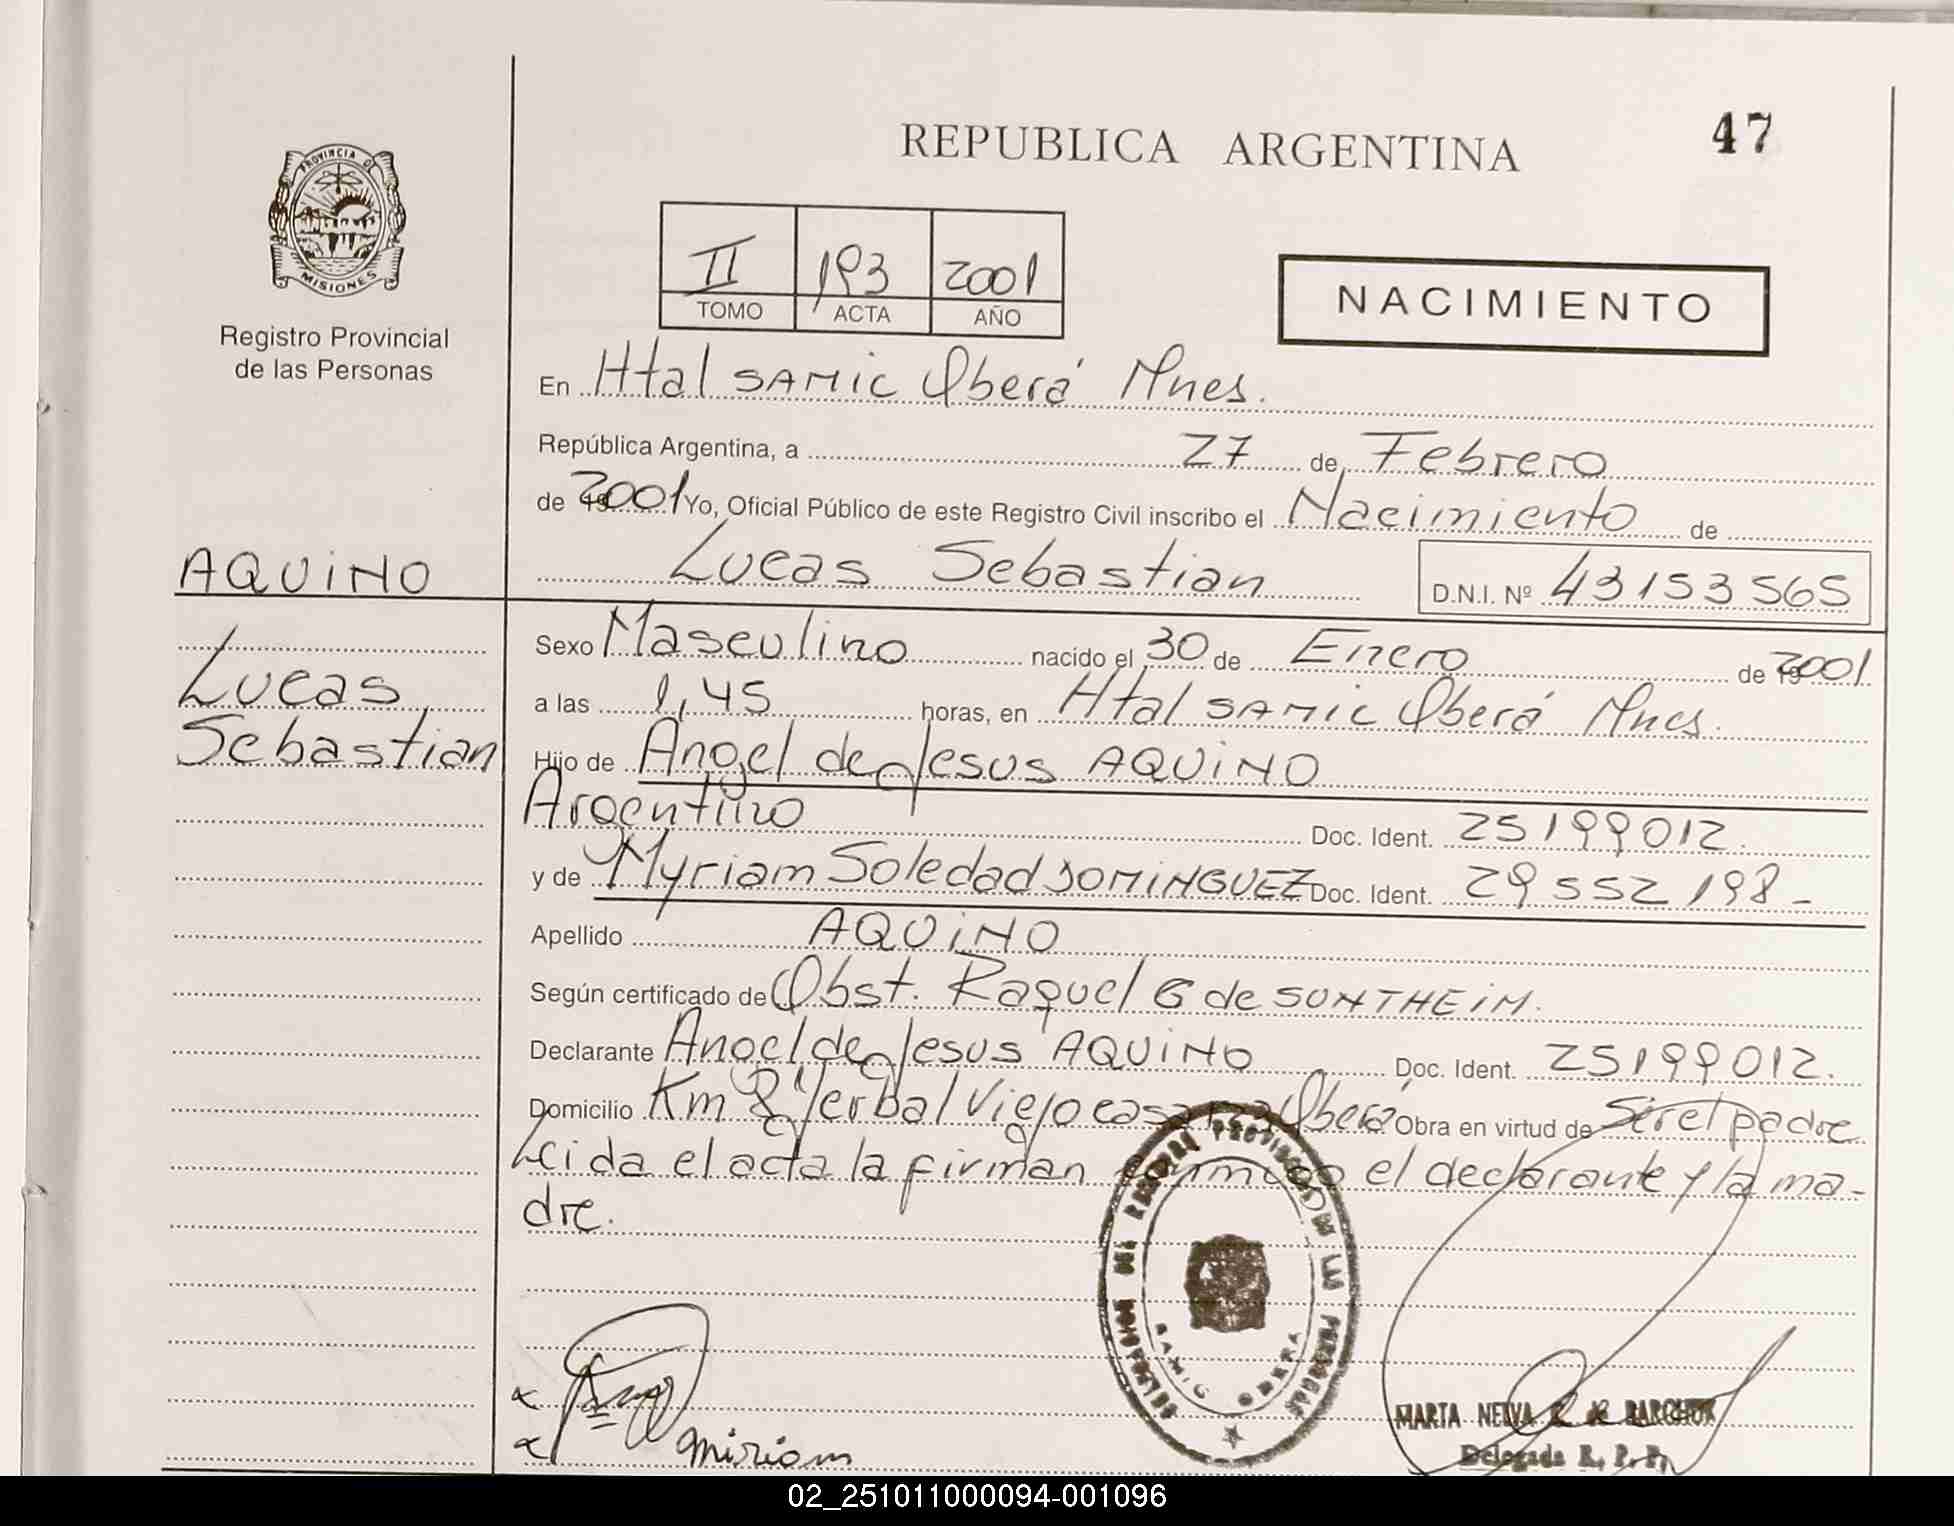 47
REPUBLICA ARGENTINA
PROVINCIA DE
MISIONES
Registro Provincial
de las Personas
II 193 2001
TOMO ACTA AÑO
NACIMIENTO
En Htal SAMIC Oberá Mnes.
República Argentina, a 27 de Febrero
de 2001 Yo, Oficial Público de este Registro Civil inscribo el Nacimiento de
Lucas Sebastian D.N.I. Nº 43153565
AQUINO
Lucas
Sebastian
Sexo Masculino nacido el 30 de Enero de 2001
a las 1,45 horas, en Htal SAMIC Oberá Mnes.
Hijo de Angel de Jesus AQUINO
Argentino Doc. Ident. 25199012.
y de Myriam Soledad DOMINGUEZ Doc. Ident. 29552198-
Apellido AQUINO
Según certificado de Obst. Raquel G de SONTHEIM.
Declarante Angel de Jesus AQUINO Doc. Ident. 25199012.
Domicilio Km 8 Yerbal Viejo casa Oberá Obra en virtud de Ser el padre
Leida el acta la firman conmigo el declarante y la ma-
dre.
DELEGACION DEL REGISTRO PROVINCIAL DE LAS PERSONAS
SAMIC OBERA
Miriam
MARTA NELVA
Delegada R. P. P.
02_251011000094-001096